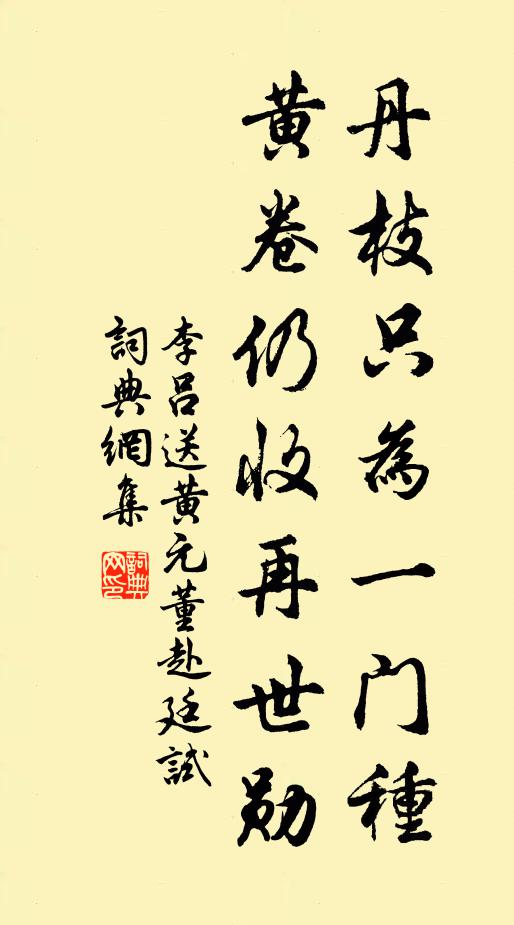 丹枝只為一门種
黄卷仍收再世勋
李吕送黄元董赴廷試
詞典網集
詞典网印